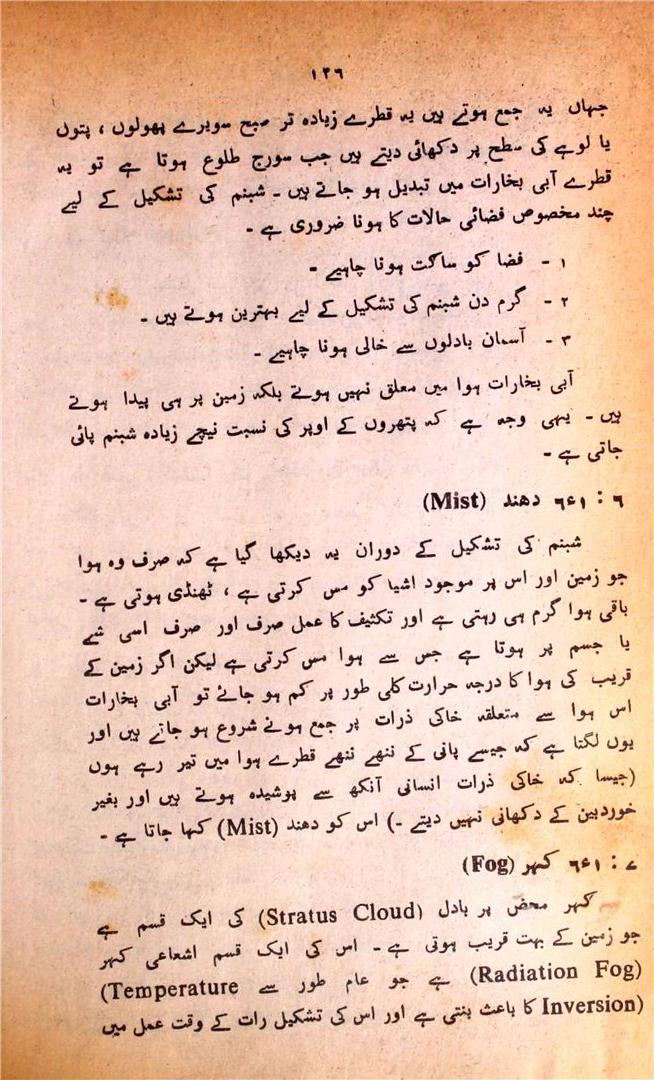 ۱۳۶
جہاں یہ جمع ہوتے ہیں یہ قطرے زیادہ تر صبح سویرے پھولوں ، پتوں
یا لوہے کی سطح پر دکھائی دیتے ہیں جب سورج طلوع ہوتا ہے تو یہ
قطرے آبی بخارات میں تبدیل ہو جاتے ہیں ۔ شبنم کی تشکیل کے لیے
چند مخصوص فضائی حالات کا ہونا ضروری ہے ۔
۱ ۔ فضا کو ساکت ہونا چاہیے ۔
۲ ۔ گرم دن شبنم کی تشکیل کے لیے بہترین ہوتے ہیں ۔
۳ ۔ آسمان بادلوں سے خالی ہونا چاہیے ۔
آبی بخارات ہوا میں معلق نہیں ہوتے بلکہ زمین پر ہی پیدا ہوتے
ہیں ۔ یہی وجہ ہے کہ پتھروں کے اوپر کی نسبت نیچے زیادہ شبنم پائی
جاتی ہے ۔
۶ : ۶ء۱ دھند (Mist)
شبنم کی تشکیل کے دوران یہ دیکھا گیا ہے کہ صرف وہ ہوا
جو زمین اور اس پر موجود اشیا کو مس کرتی ہے ، ٹھنڈی ہوتی ہے ۔
باقی ہوا گرم ہی رہتی ہے اور تکثیف کا عمل صرف اور صرف اسی شے
یا جسم پر ہوتا ہے جس سے ہوا مس کرتی ہے لیکن اگر زمین کے
قریب کی ہوا کا درجہ حرارت کلی طور پر کم ہو جائے تو آبی بخارات
اس ہوا سے متعلقہ خاکی ذرات پر جمع ہونے شروع ہو جاتے ہیں اور
یوں لگتا ہے کہ جیسے پانی کے ننھے ننھے قطرے ہوا میں تیر رہے ہوں
(جیسا کہ خاکی ذرات انسانی آنکھ سے پوشیدہ ہوتے ہیں اور بغیر
خوردبین کے دکھائی نہیں دیتے ۔) اس کو دھند (Mist) کہا جاتا ہے ۔
۷ : ۶ء۱ کہر (Fog)
کہر محض پر بادل (Stratus Cloud) کی ایک قسم ہے
جو زمین کے بہت قریب ہوتی ہے ۔ اس کی ایک قسم اشعاعی کہر
(Radiation Fog) ہے جو عام طور سے (Temperature
Inversion) کا باعث بنتی ہے اور اس کی تشکیل رات کے وقت عمل میں